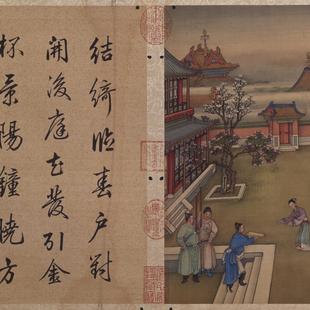 結綺臨春戶對
開後庭花發引金
杯景陽鐘曉方